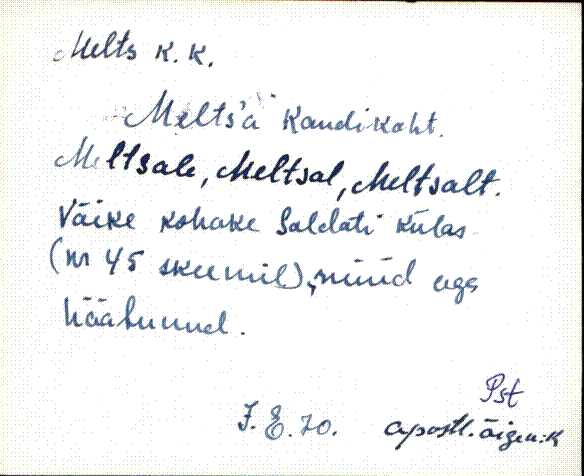 Melts k. k.
Melts'a kandikoht.
Meltsale, Meltsal, Meltsalt.
Väike kohake Saldati külas
(nr 45 skeemil), nüüd aga
hääbunud.
Pst
J. E. 70. apostl. õigeu: k